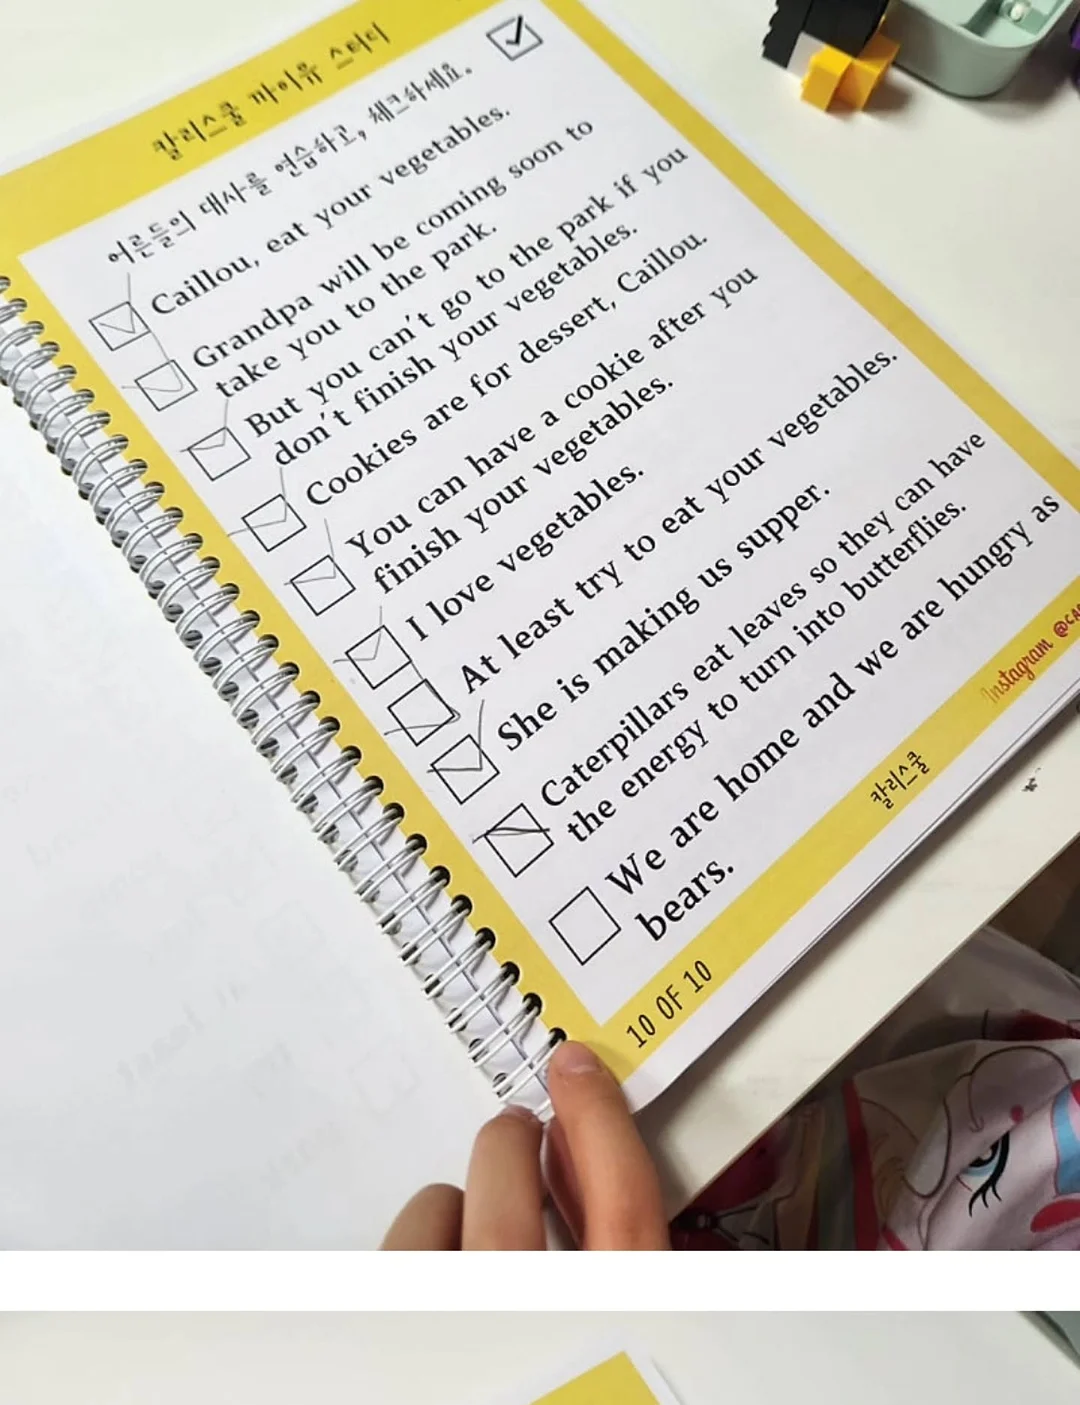 칼리스쿨 까이유 스터디
어른들의 대사를 연습하고, 체크하세요.
Caillou, eat your vegetables.
Grandpa will be coming soon to
take you to the park.
But you can't go to the park if you
don't finish your vegetables.
Cookies are for dessert, Caillou.
You can have a cookie after you
finish your vegetables.
I love vegetables.
At least try to eat your vegetables.
She is making us supper.
Caterpillars eat leaves so they can have
the energy to turn into butterflies.
We are home and we are hungry as
bears.
10 OF 10
칼리스쿨
Instagram